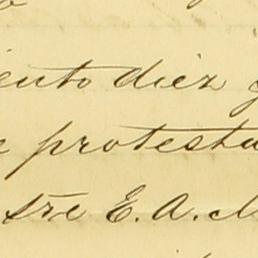 iento diez y
e protesta
stre E. A. M